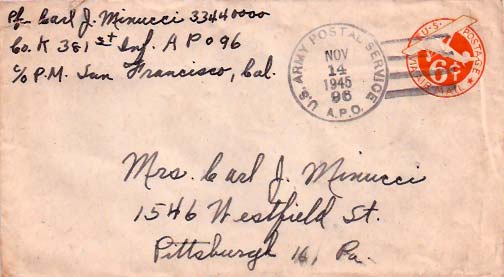 Pfc Carl J. Minucci 33440000
Co. K 381st Inf. A P O 96
c/o P.M. San Francisco, Cal.
U.S. ARMY POSTAL SERVICE
NOV
14
1945
96
A.P.O.
U.S. POSTAGE
VIA AIR MAIL
6¢
Mrs. Carl J. Minucci
1546 Westfield St.
Pittsburgh 16, Pa.